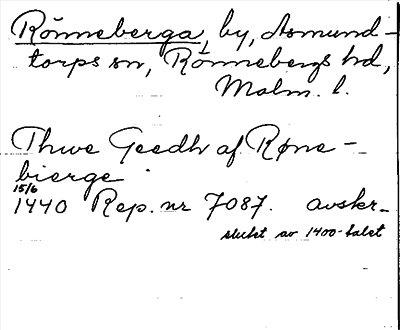 Rönneberga, by, Asmund-
torps sn, Rönnebergs hd,
Malm. l.
Thwe Geedh af Røne-
bierge
15/6
1440 Rep. nr 7087. avskr.
slutet av 1400-talet